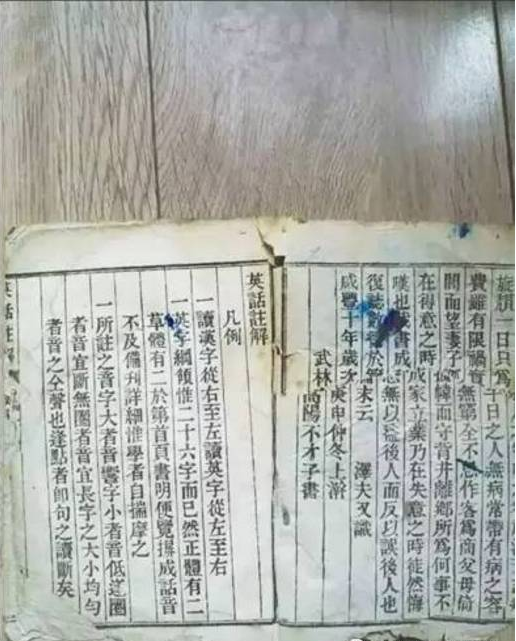 旋頹一日只爲千日之人無病常帶有病之客
費雖有限禍實無窮全不思作客爲商父母倚
閭而望妻子孤幃而守背井離鄉所爲何事不
在得意之時成家立業乃在失意之時徒然悔
嘆也哉書成
無以益後人而反以誤後人也
復誌數
於篇末云 澤夫又識
咸豐十年歲次庚申仲冬上澣
武林高陽不才子書
英話註解
凡例
一讀漢字從右至左讀英字從左至右
一英字綱領惟二十六字而已然正體有二
草體有二於第首頁書明便覽揚成話音
不及備列詳細惟學者自揣摩之
一所註之音字大者音響字小者音低逢圈
者音宜斷無圈者音宜長字之大小均勻
者音之全聲也逢點者卽句之讀斷矣
英話註解